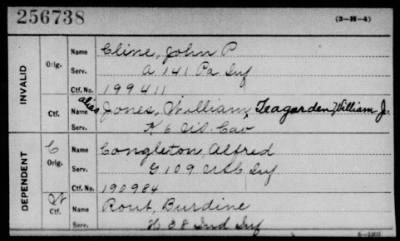 256738
(3-H-4)
INVALID
Orig.
Name Cline, John P
Serv. A 141 Pa Inf
Ctf. No. 199411
Ctf.
Name alias Jones, William, Teagarden, William J.
Serv. K 6 Cav
DEPENDENT
C
Orig.
Name Congleton, Alfred
Serv. G 109 Inf
Ctf. No. 190984
Ctf.
Name Rout, Burdine
Serv. H 38 Ind Inf